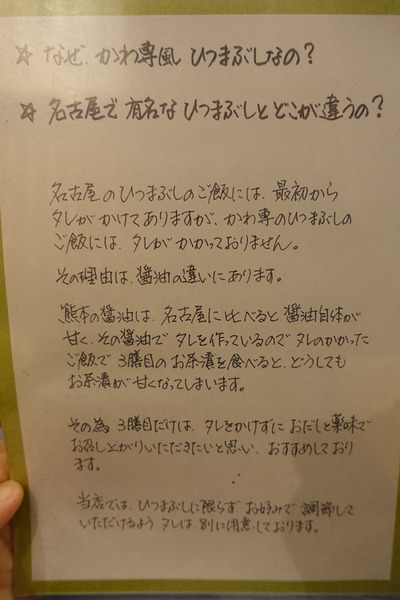 ☆ なぜ、かわ専風 ひつまぶしなの？
☆ 名古屋で 有名な ひつまぶしと どこが違うの？
名古屋のひつまぶしのご飯には、最初から
タレがかけてありますが、かわ専のひつまぶしの
ご飯には、タレがかかっておりません。
その理由は、醤油の違いにあります。
熊本の醤油は、名古屋に比べると 醤油自体が
甘く、その醤油で タレを作っているので タレのかかった
ご飯で 3膳目の お茶漬を食べると、どうしても
お茶漬が甘くなってしまいます。
その為 3膳目だけは、タレをかけずに おだしと薬味で
お召し上がりいただきたいと思い、おすすめしており
ます。
当店では、ひつまぶしに限らず、お好みで 調節して
いただけるよう タレは 別に用意しております。